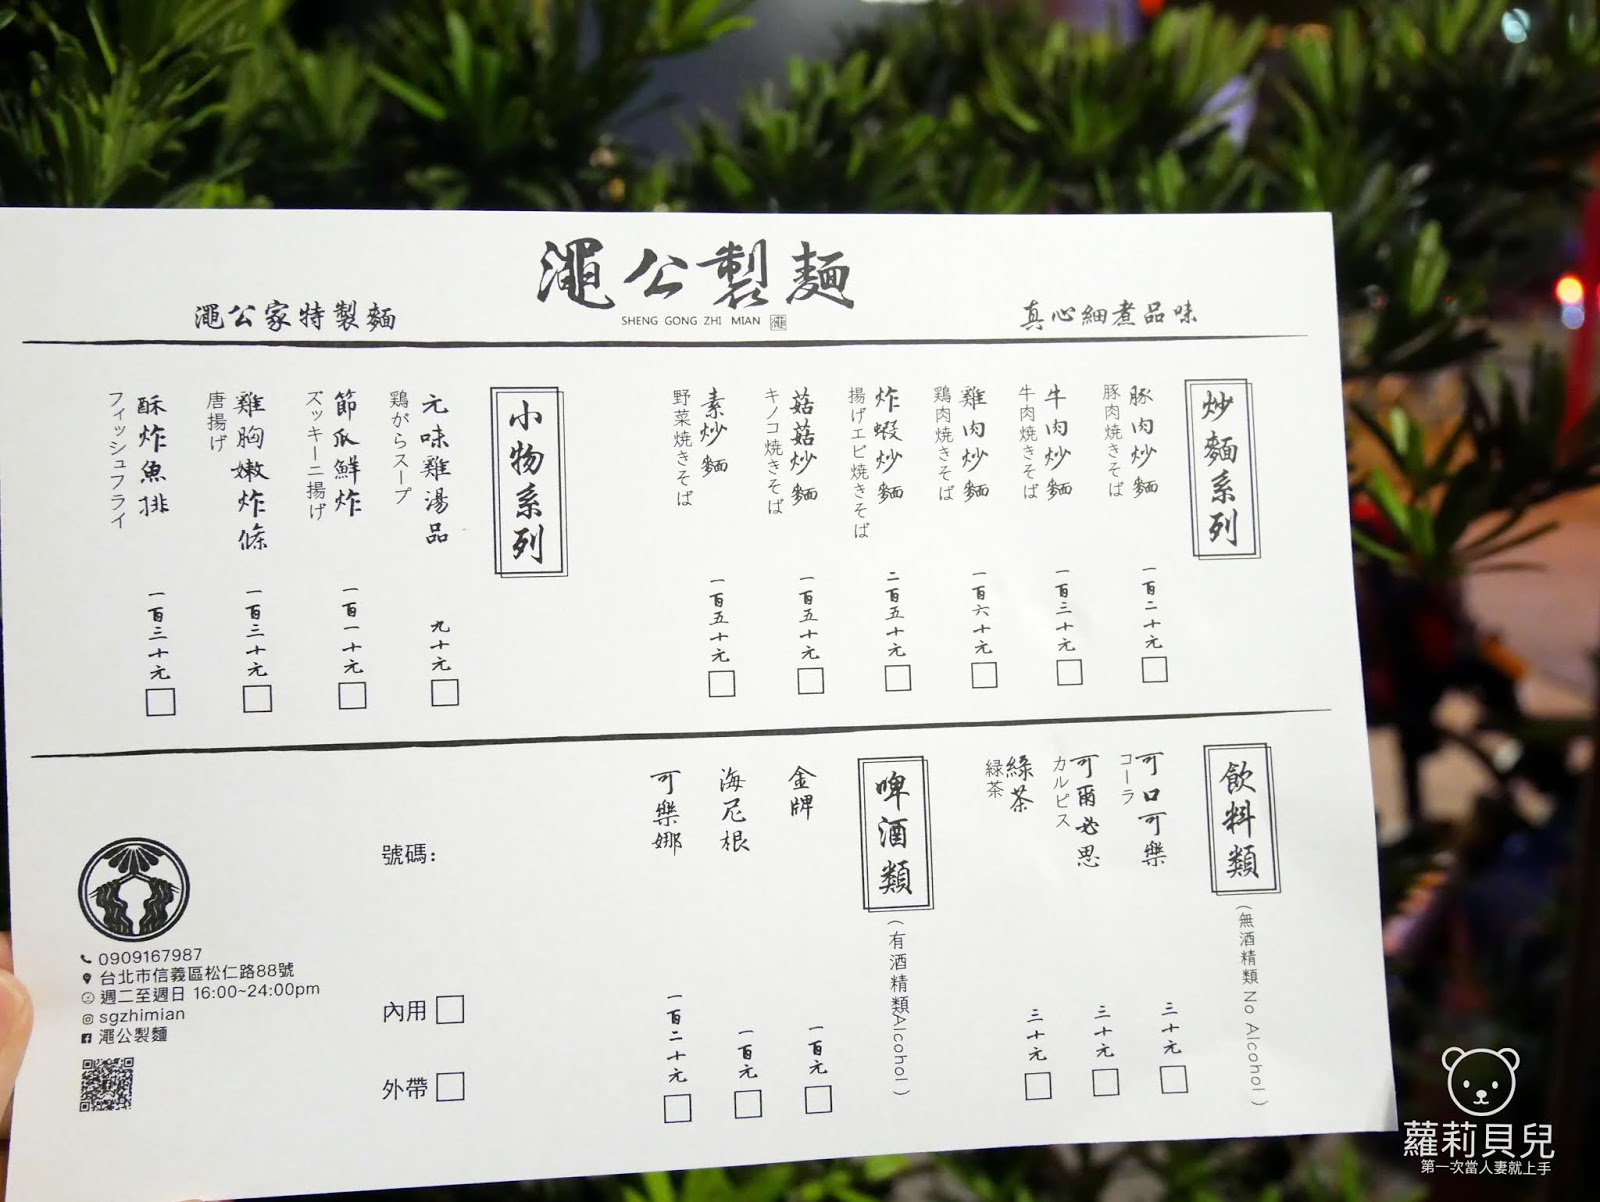 澠公製麵
SHENG GONG ZHI MIAN 澠
真心細煮品味
澠公家特製麵
炒麵系列
豚肉炒麵
豚肉焼きそば
一百二十元
牛肉炒麵
牛肉焼きそば
一百三十元
雞肉炒麵
鶏肉焼きそば
一百六十元
炸蝦炒麵
揚げエビ焼きそば
二百五十元
菇菇炒麵
キノコ焼きそば
一百五十元
素炒麵
野菜焼きそば
一百五十元
小物系列
元味雞湯品
鶏がらスープ
九十元
節瓜鮮炸
ズッキーニ揚げ
一百一十元
雞胸嫩炸條
唐揚げ
一百三十元
酥炸魚排
フィッシュフライ
一百三十元
飲料類
(無酒精類 No Alcohol)
可口可樂
コーラ
三十元
可爾必思
カルピス
三十元
綠茶
緑茶
三十元
啤酒類
(有酒精類Alcohol)
金牌
一百元
海尼根
一百元
可樂娜
一百二十元
號碼:
內用
外帶
0909167987
台北市信義區松仁路88號
週二至週日 16:00~24:00pm
sgzhimian
澠公製麵
蘿莉貝兒
第一次當人妻就上手